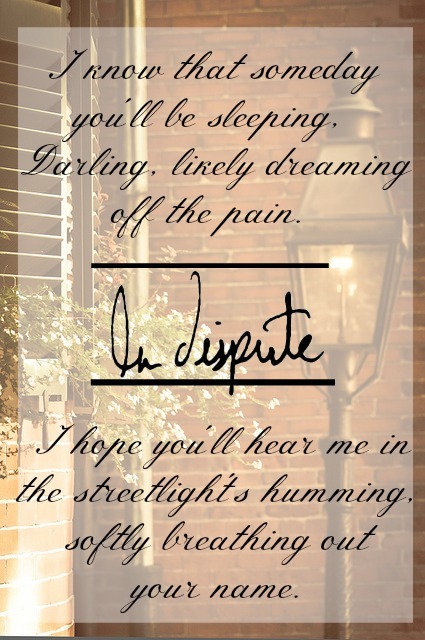 I know that someday
you'll be sleeping,
Darling, likely dreaming
off the pain.
La Dispute
I hope you'll hear me in
the streetlight's humming,
softly breathing out
your name.